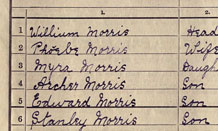 1. 2.
1 William Morris Head
2 Phoebe Morris Wife
3 Myra Morris Daugh
4 Archer Morris Son
5 Edward Morris Son
6 Stanley Morris Son